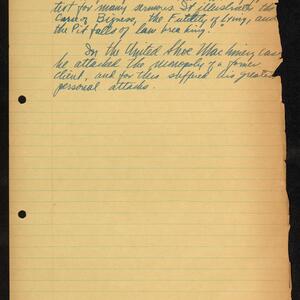 text for many sermons It illustrates the
Curse of Bigness, the Futility of Lying, and
the Pit falls of law breaking.
In the United Shoe Machinery Case
he attacked the monopoly of a former
client, and for this suffered his greatest
personal attacks.